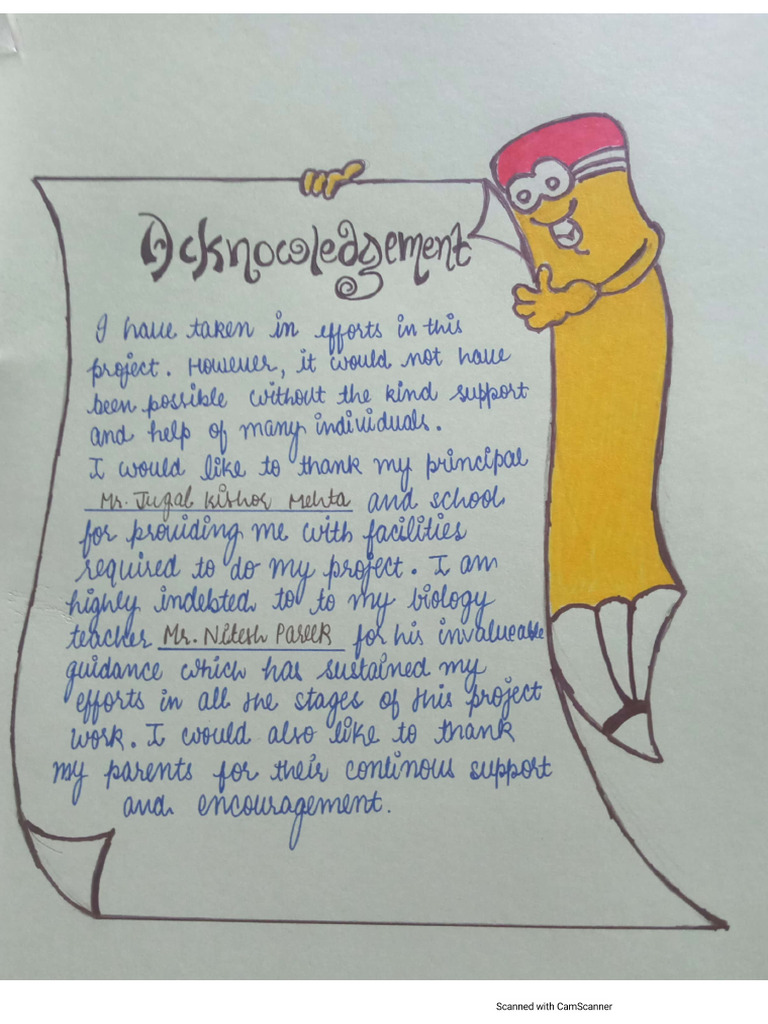 Acknowledgement
I have taken in efforts in this
project. However, it would not have
been possible without the kind support
and help of many individuals.
I would like to thank my principal
Mr. Jugal Kishor Mehta and school
for providing me with facilities
required to do my project. I am
highly indebted to to my biology
teacher Mr. Nitesh Pareek for his invalueable
guidance which has sustained my
efforts in all the stages of this project
work. I would also like to thank
my parents for their continous support
and encouragement.
Scanned with CamScanner